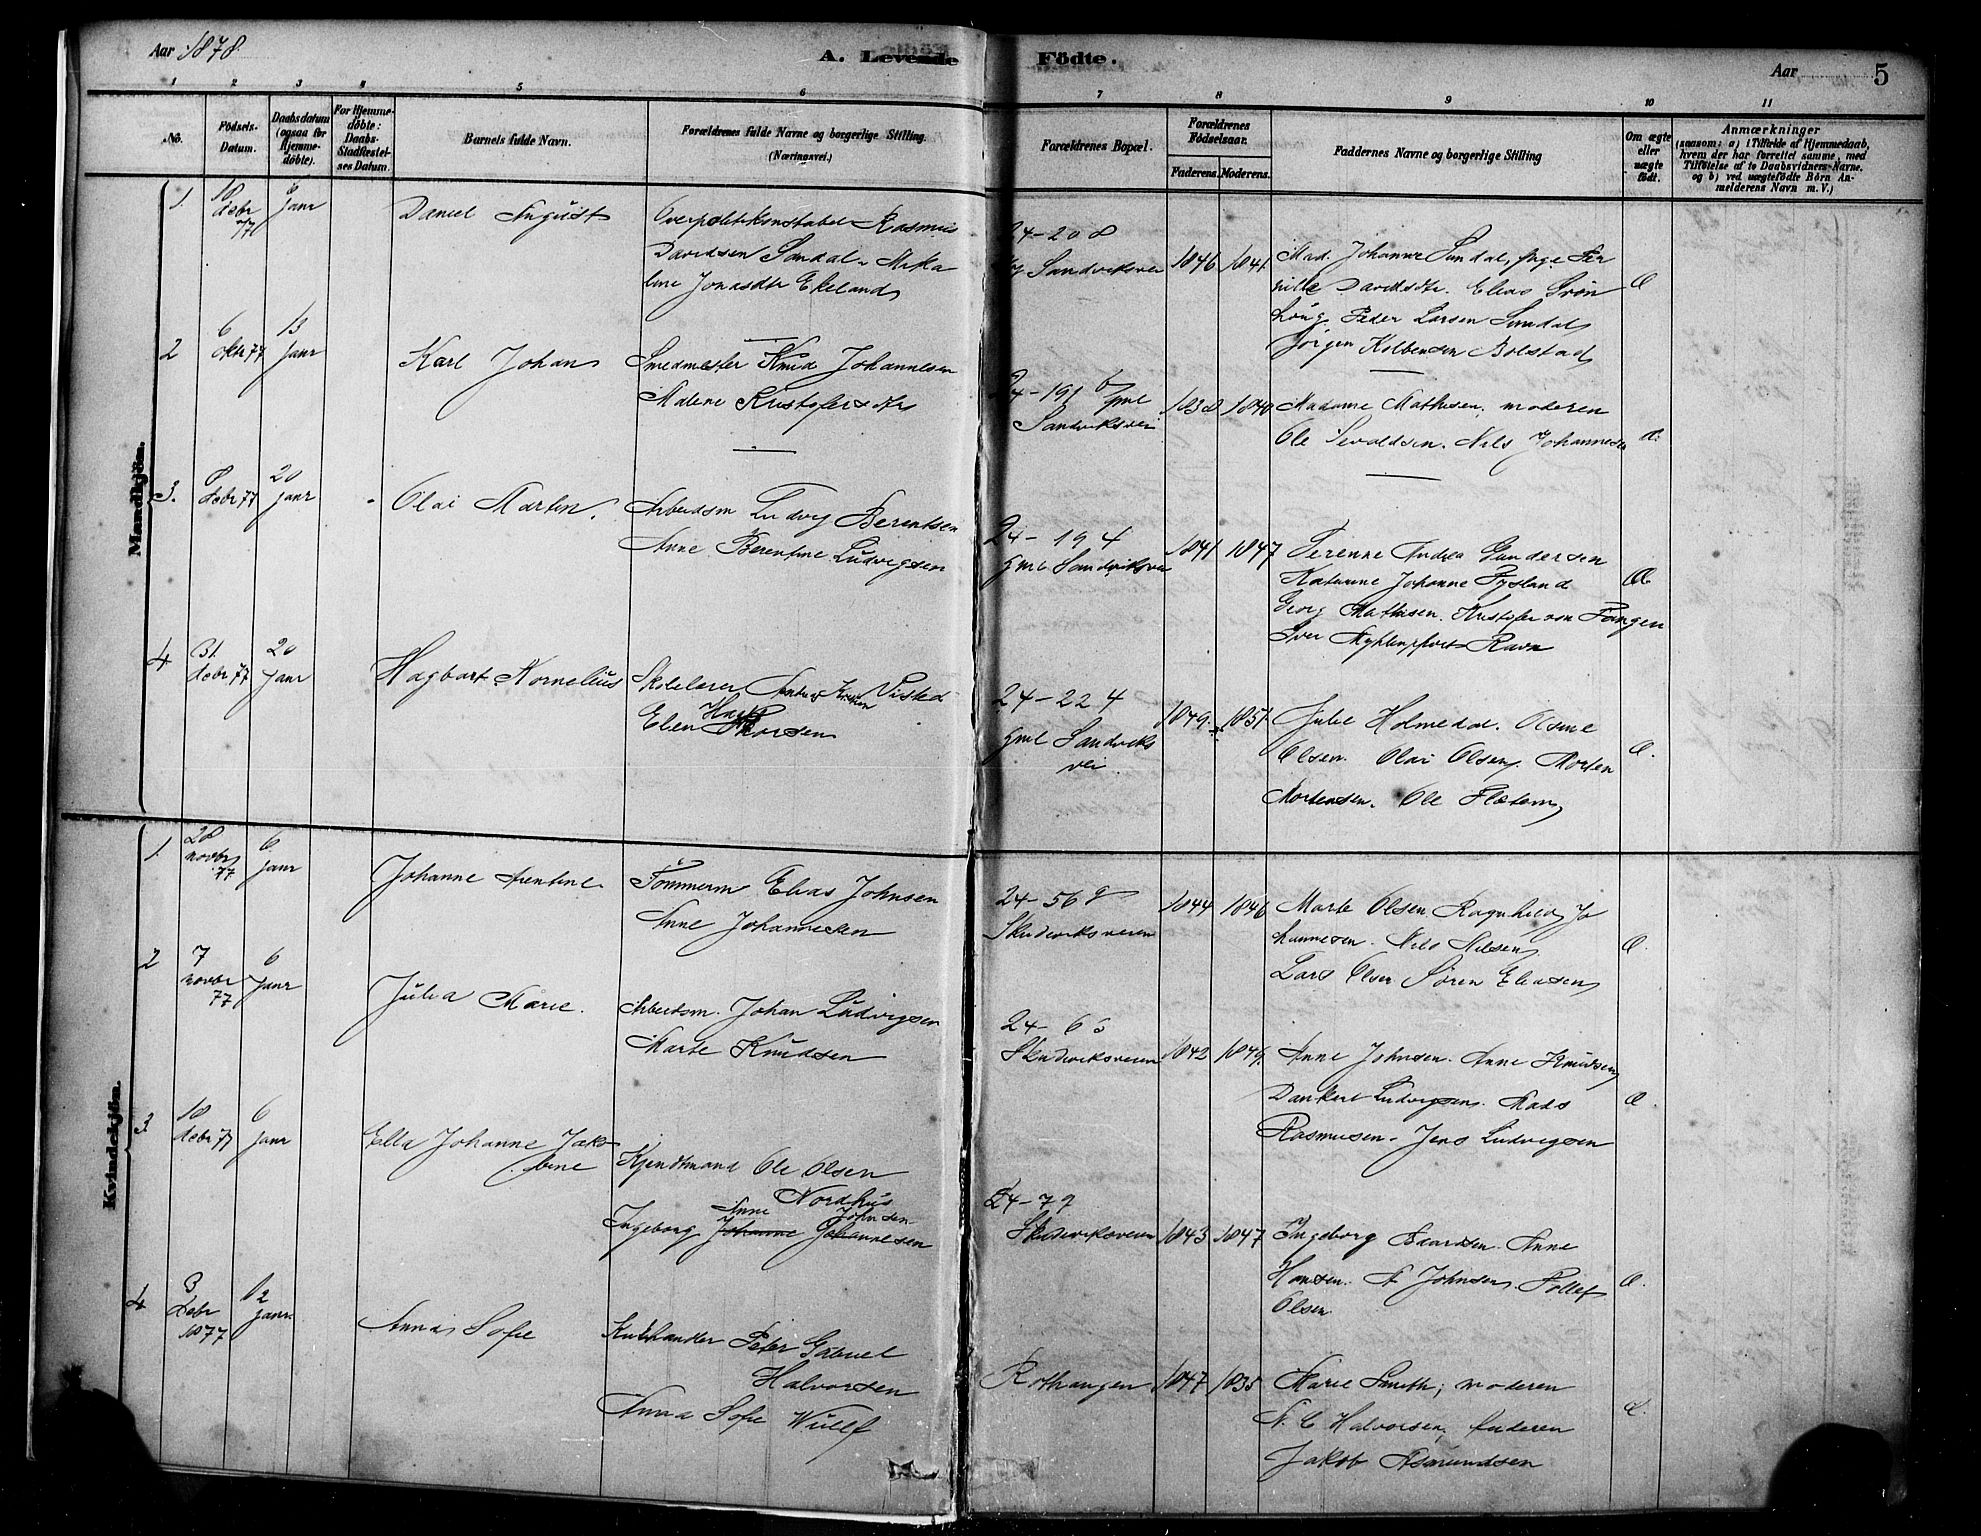 Aar 1878.
A. Levende Födte.
Aar
5
1 2 3 4 5 6 7 8 9 10 11
No.
Födsels-Datum.
Daabsdatum (ogsaa for Hjemme-döbte).
For Hjemme-döbte: Daabs-Stadfæstel-ses Datum.
Barnets fulde Navn.
Forældrenes fulde Navne og borgerlige Stilling.
(Næringsvei.)
Forældrenes Bopæl.
Forældrenes Födselsaar.
Faderens. Moderens.
Faddernes Navne og borgerlige Stilling
Om ægte eller uægte födt.
Anmærkninger
(saasom: a) i Tilfælde af Hjemmedaab, hvem der har forrettet samme, med Tilföielse af to Daabsvidners Navne, og b) ved uægtefödte Börn An-melderens Navn m. V.)
Mandkjön.
1. 10 debr 77
8 janr
Daniel August
Overpolitikonstabel Rasmus
Davidsen Sandal. Mika
line Jonasdtr Ekeland
24-208
Sandviksvei
1846 1841
Mad. Johanne Sandal, Pige Per
nille Davidsdtr. Elias Grøn
haug. Peder Larsen Sandal
Jørgen Kolbensen Bolstad
2 6 oktr 77
13 janr
Karl Johan
Smedmester Knud Johannesen
Malene Kristofersdtr
24-191 b gml
Sandviksvei
1838 1840
Madame Mathisen, moderen
Ole Sivaldsen. Nils Johannesen
3. 8 debr 77
20 janr
Olai Martin.
Arbeidsm Ludvig Berentsen
Anne Berentine Ludvigsen
24-194
gml Sandviksvei
1841. 1847
Serenne Andrea Gundersen
Katrine Johanne Fysland
Georg Mathisen. Kristofer von Fangen
Iver Ravn
4 31 debr 77
20 janr
Hagbart Kornelius
Skolelærer Kristen Visted
Elen Thorsen
24-224
gml Sandviks
vei
1849. 1851.
Julie Holmedal. Olsine
Olsen. Olai Olsen. Morten
Mortensen. Ole Flatum
Kvindekjön.
1. 28 novbr 77
6 janr
Johanne Arentine.
Tömmerm Elias Johnsen
Anne Johannesen
24-568
Skudeviksveien
1844 1846
Marte Olsen Ragnhild Jo
hannesen. Nils Nilsen
Lars Olsen Søren Eliasen
2 7 novbr 77
6 janr
Julia Marie.
Arbeidsm. Johan Ludvigsen
Marte Knudsen
24-63
Skudeviksveien
1842 1849.
Anne Johnsen. Anne Knudsen
Dankert Ludvigsen. Mads
Rasmusen. Jens Ludvigsen
3 10 debr 77
6 janr
Ella Johanne Jako
bine
Kjendtmand Ole Olsen
Nordhus
Anne Johnsen
Ingeborg Johanne Johannesen
24-79
Skudeviksveien
1843 1847
Ingeborg Baardsen. Anne
Hansen. A Johnsen. Tollef
Olsen
4 3 debr 1877
12 janr.
Anna Sofie
Kulhandler Peter Gabriel
Halvorsen
Anna Sofie Wulff
Rothaugen
1847 1835
Marie Smith, moderen
N. C Halvorsen, faderen
Jakob Asmundsen